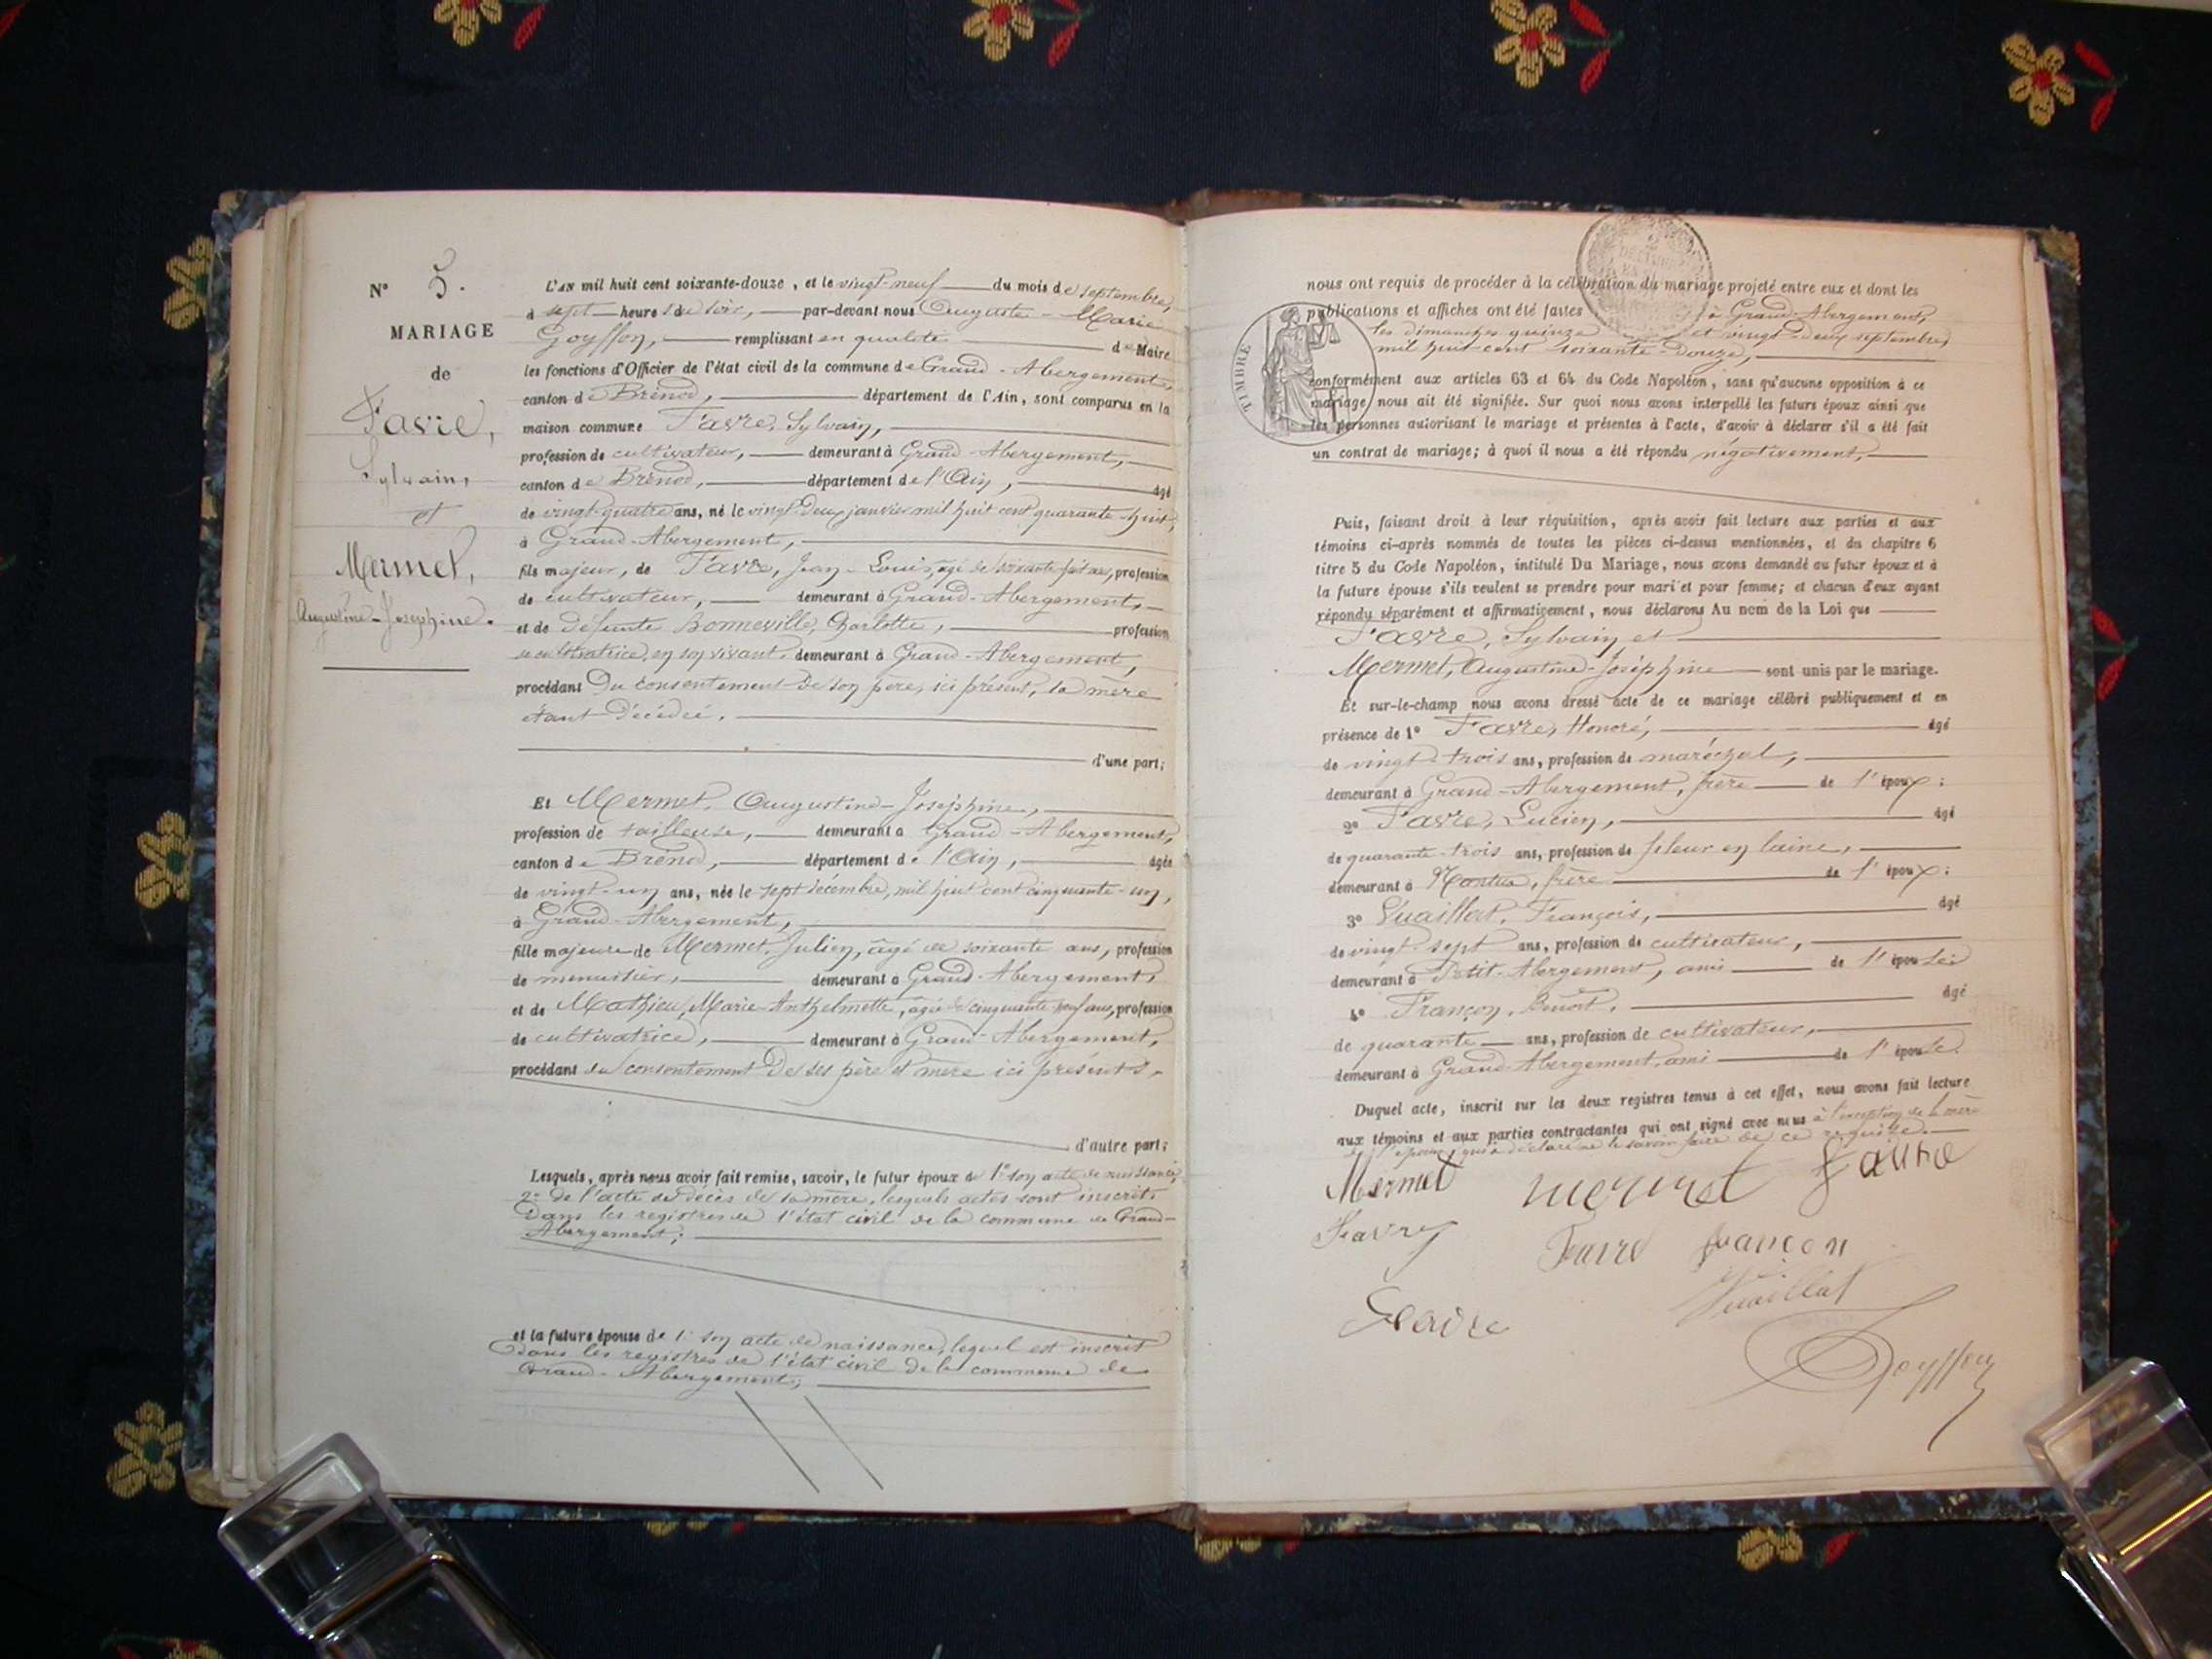 N° 5.
MARIAGE
de
Favre,
Sylvain,
et
Mermet,
Augustine-Joséphine.
L'AN mil huit cent soixante-douze, et le vingt-neuf du mois de septembre,
à sept heures du soir, par-devant nous Auguste-Marie
Goyffon, remplissant en qualité de Maire
les fonctions d'Officier de l'état civil de la commune de Grand-Abergement,
canton de Brénod, département de l'Ain, sont comparus en la
maison commune Favre, Sylvain,
profession de cultivateur, demeurant à Grand-Abergement,
canton de Brénod, département de l'Ain, âgé
de vingt-quatre ans, né le vingt-deux janvier mil huit cent quarante-huit,
à Grand-Abergement,
fils majeur, de Favre, Jean-Louis, âgé de soixante sept ans, profession
de cultivateur, demeurant à Grand-Abergement,
et de défunte Bonneville, Charlotte, profession
de cultivatrice, en son vivant, demeurant à Grand-Abergement,
procédant du consentement de son père, ici présent, la mère
étant décédée.
d'une part;
Et Mermet, Augustine-Joséphine,
profession de tailleuse, demeurant à Grand-Abergement,
canton de Brénod, département de l'Ain, âgée
de vingt-un ans, née le sept décembre, mil huit cent cinquante-un,
à Grand-Abergement,
fille majeure de Mermet, Julien, âgé de soixante ans, profession
de menuisier, demeurant à Grand-Abergement,
et de Mathieu, Marie-Anthelmette, âgée de cinquante neuf ans, profession
de cultivatrice, demeurant à Grand-Abergement,
procédant du consentement de ses père et mère ici présents,
d'autre part;
Lesquels, après nous avoir fait remise, savoir, le futur époux de 1° son acte de naissance,
2° de l'acte de décès de sa mère, lesquels actes sont inscrits
dans les registres de l'état civil de la commune de Grand-
Abergement;
et la future épouse de 1° son acte de naissance, lequel est inscrit
dans les registres de l'état civil de la commune de
Grand-Abergement;
nous ont requis de procéder à la célébration du mariage projeté entre eux et dont les
publications et affiches ont été faites à Grand-Abergement,
les dimanches quinze et vingt-deux septembre
mil huit cent soixante-douze,
TIMBRE
conformément aux articles 63 et 64 du Code Napoléon, sans qu'aucune opposition à ce
mariage nous ait été signifiée. Sur quoi nous avons interpellé les futurs époux ainsi que
les personnes autorisant le mariage et présentes à l'acte, d'avoir à déclarer s'il a été fait
un contrat de mariage; à quoi il nous a été répondu négativement,
Puis, faisant droit à leur réquisition, après avoir fait lecture aux parties et aux
témoins ci-après nommés de toutes les pièces ci-dessus mentionnées, et du chapitre 6
titre 5 du Code Napoléon, intitulé Du Mariage, nous avons demandé au futur époux et à
la future épouse s'ils veulent se prendre pour mari et pour femme; et chacun d'eux ayant
répondu séparément et affirmativement, nous déclarons Au nom de la Loi que
Favre, Sylvain et
Mermet, Augustine-Joséphine sont unis par le mariage.
Et sur-le-champ nous avons dressé acte de ce mariage célébré publiquement et en
présence de 1° Favre, Honoré, âgé
de vingt-trois ans, profession de maréchal,
demeurant à Grand-Abergement, frère de l'époux;
2° Favre, Lucien, âgé
de quarante-trois ans, profession de fileur en laine,
demeurant à Nantua, frère de l'époux;
3° Vuaillat, François, âgé
de vingt-sept ans, profession de cultivateur,
demeurant à Petit-Abergement, ami de l'épouse;
4° Françon, Benoît, âgé
de quarante ans, profession de cultivateur,
demeurant à Grand-Abergement, ami de l'épouse.
Duquel acte, inscrit sur les deux registres tenus à cet effet, nous avons fait lecture
aux témoins et aux parties contractantes qui ont signé avec nous à l'exception de la mère
de l'épouse, qui a déclaré ne le savoir faire de ce requise.
Mermet mermet favre
Favre Favre françon
Vuaillat
Favre
Goyffon